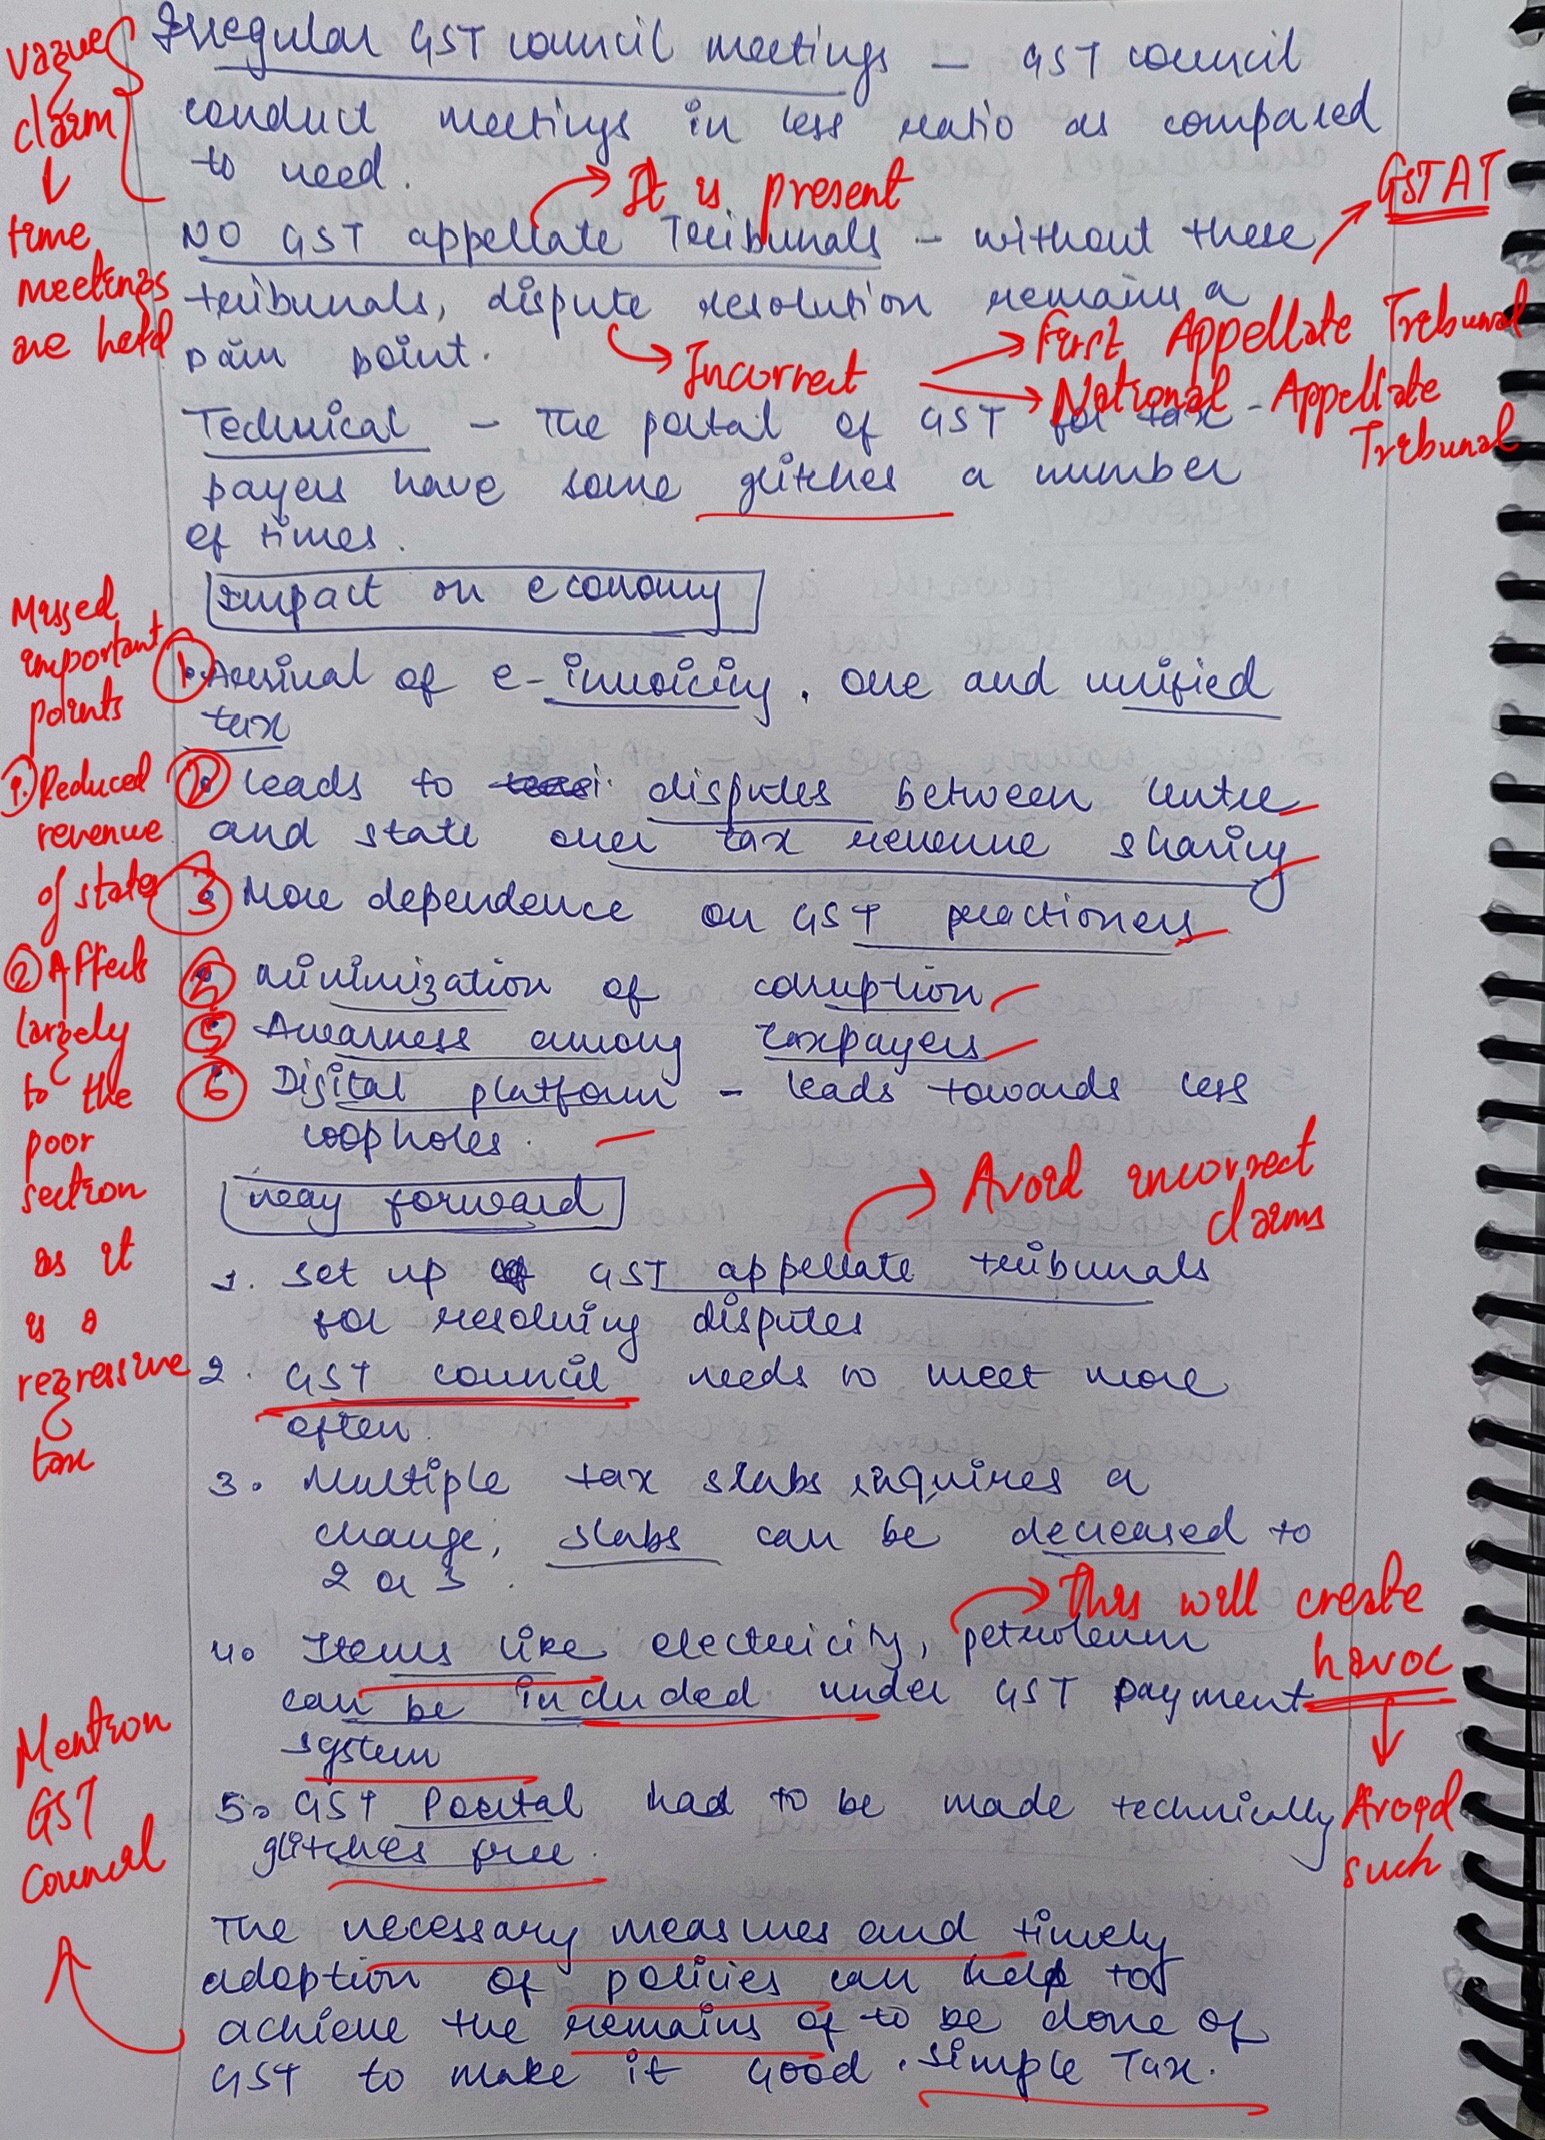 Irregular GST council meetings - GST council
conduct meetings in less ratio as compared
to need.
vague
claim
time
meetings
are held
It is present
GSTAT
NO GST appellate Tribunals - without these
tribunals, dispute resolution remains a
pain point.
Incorrect
First Appellate Tribunal
National Appellate
Tribunal
Technical - The portal of GST for tax -
payers have some glitches a number
of times.
Impact on economy
Missed
important
points
1. Reduced
revenue
of states
2 Affects
largely
to the
poor
section
as it
is a
regressive
tax
1 Arrival of e-invoicing, one and unified
tax
2 leads to disputes between centre
and state over tax revenue sharing
3 More dependence on GST practioners
4 minimization of corruption
5 Awarness among taxpayers
6 Digital platform - leads towards less
loopholes.
way forward
Avoid incorrect
claims
1. set up GST appellate tribunals
for resolving disputes
2. GST council needs to meet more
often.
3. Multiple tax slabs requires a
change, slabs can be decreased to
2 or 3.
This will create
havoc
Avoid
such
4. Items like electricity, petroleum
can be included under GST payment
system
5. GST Portal had to be made technically
glitches free.
Mention
GST
Council
The necessary measures and timely
adoption of policies can help to
achieve the remains of to be done of
GST to make it Good. simple Tax.